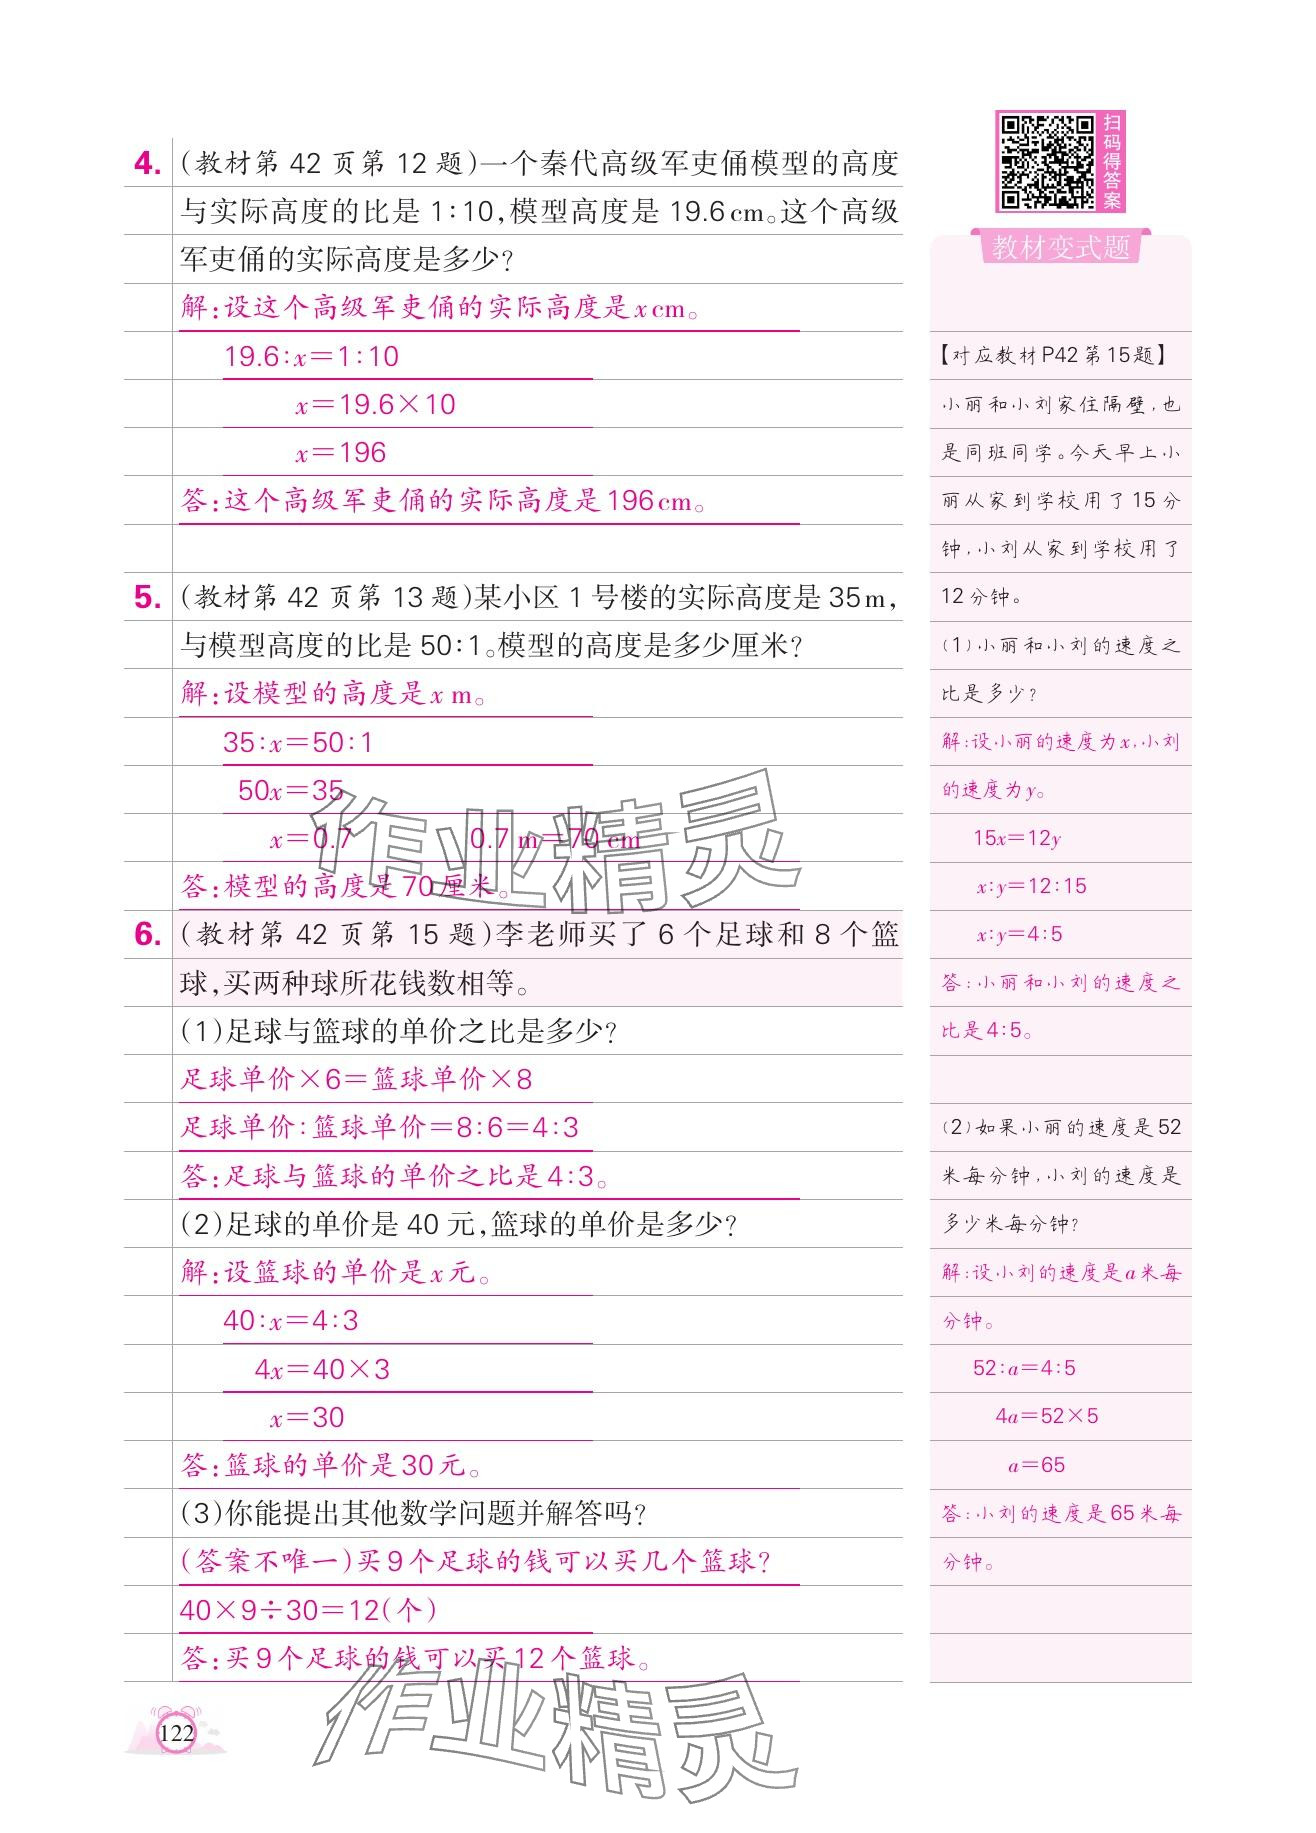 扫码得答案
4. (教材第 42 页第 12 题)一个秦代高级军吏俑模型的高度
与实际高度的比是 1∶10,模型高度是 19.6 cm。这个高级
军吏俑的实际高度是多少?
解:设这个高级军吏俑的实际高度是 x cm。
19.6∶x=1∶10
x=19.6×10
x=196
答:这个高级军吏俑的实际高度是 196 cm。
5. (教材第 42 页第 13 题)某小区 1 号楼的实际高度是 35 m,
与模型高度的比是 50∶1。模型的高度是多少厘米?
解:设模型的高度是 x m。
35∶x=50∶1
50x=35
x=0.7 0.7 m=70 cm
答:模型的高度是 70 厘米。
6. (教材第 42 页第 15 题)李老师买了 6 个足球和 8 个篮
球,买两种球所花钱数相等。
(1)足球与篮球的单价之比是多少?
足球单价×6=篮球单价×8
足球单价∶篮球单价=8∶6=4∶3
答:足球与篮球的单价之比是 4∶3。
(2)足球的单价是 40 元,篮球的单价是多少?
解:设篮球的单价是 x 元。
40∶x=4∶3
4x=40×3
x=30
答:篮球的单价是 30 元。
(3)你能提出其他数学问题并解答吗?
(答案不唯一)买 9 个足球的钱可以买几个篮球?
40×9÷30=12(个)
答:买 9 个足球的钱可以买 12 个篮球。
教材变式题
【对应教材 P42 第 15 题】
小丽和小刘家住隔壁,也
是同班同学。今天早上小
丽从家到学校用了 15 分
钟,小刘从家到学校用了
12 分钟。
(1)小丽和小刘的速度之
比是多少?
解:设小丽的速度为 x,小刘
的速度为 y。
15x=12y
x∶y=12∶15
x∶y=4∶5
答:小丽和小刘的速度之
比是 4∶5。
(2)如果小丽的速度是 52
米每分钟,小刘的速度是
多少米每分钟?
解:设小刘的速度是 a 米每
分钟。
52∶a=4∶5
4a=52×5
a=65
答:小刘的速度是 65 米每
分钟。
作业精灵
作业精灵
122